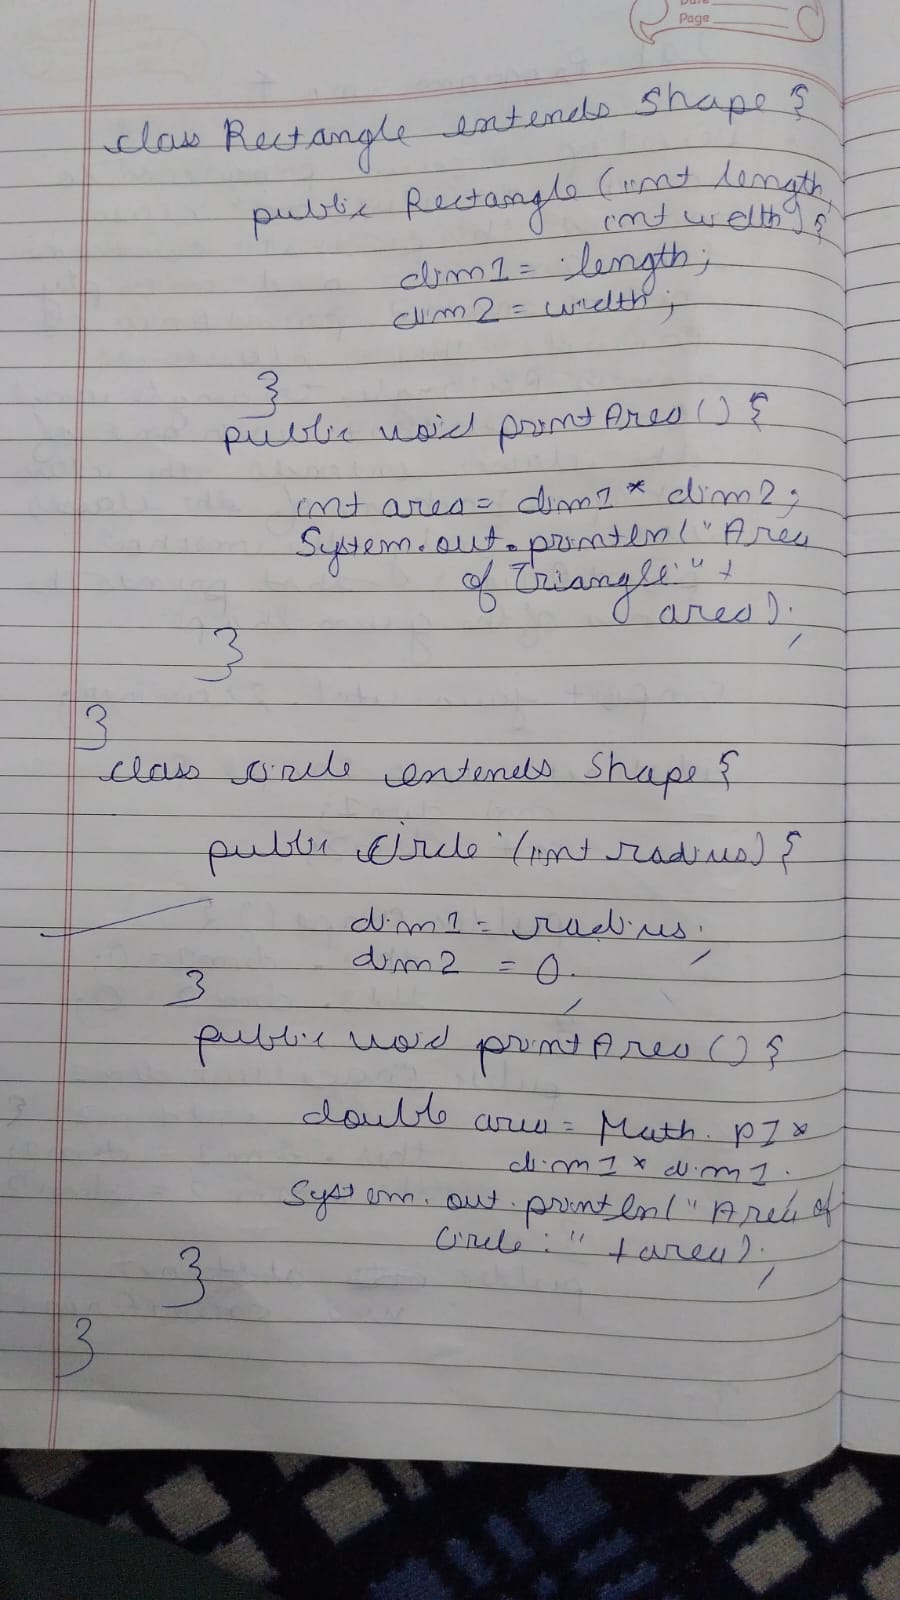 Date
Page
class Rectangle extends Shape {
public Rectangle (int length,
int width) {
dim1 = length;
dim2 = width;
}
public void printArea () {
int area = dim1 * dim2;
System.out.println("Area
of Triangle:" +
area);
}
}
class Circle extends Shape {
public Circle (int radius) {
dim1 = radius;
dim2 = 0;
}
public void printArea () {
double area = Math.PI *
dim1 * dim1.
System.out.println("Area of
Circle:" + area);
}
}